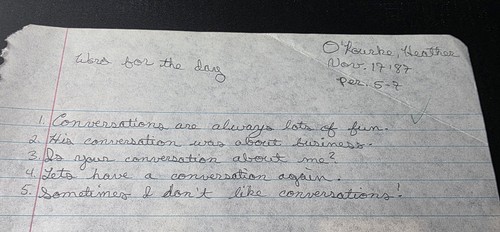 O'Rourke, Heather
Nov. 17 '87
Per. 5-7
Word for the day
1. Conversations are always lots of fun.
2. His conversation was about business.
3. Is your conversation about me?
4. Lets have a conversation again.
5. Sometimes I don't like conversations!